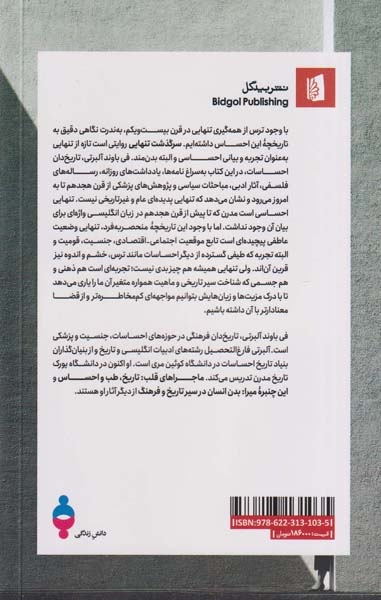 نشر بیدگل
Bidgol Publishing
با وجود ترس از همه‌گیری تنهایی در قرن بیست‌ویکم، به‌ندرت نگاهی دقیق به
تاریخچهٔ این احساس داشته‌ایم. سرگذشت تنهایی روایتی است تازه از تنهایی
به‌عنوان تجربه و بیانی احساسی و البته بدن‌مند. فی باوند آلبرتی، تاریخ‌دان
احساسات، در این کتاب به‌سراغ نامه‌ها، یادداشت‌های روزانه، رساله‌های
فلسفی، آثار ادبی، مباحثات سیاسی و پژوهش‌های پزشکی از قرن هجدهم تا به
امروز می‌رود و نشان می‌دهد که تنهایی پدیده‌ای عام و غیرتاریخی نیست. تنهایی
احساسی است مدرن که تا پیش از قرن هجدهم در زبان انگلیسی واژه‌ای برای
بیان آن وجود نداشت. اما با وجود این تاریخچهٔ منحصربه‌فرد، تنهایی وضعیت
عاطفی پیچیده‌ای است تابع موقعیت اجتماعی-اقتصادی، جنسیت، قومیت و
البته تجربه که طیفی گسترده از دیگر احساسات مانند ترس، خشم و اندوه نیز
قرین آن‌اند. ولی تنهایی همیشه هم چیز بدی نیست؛ تجربه‌ای است هم ذهنی و
هم جسمی که شناخت سیر تاریخی و ماهیت همواره متغیر آن ما را یاری می‌دهد
تا با درک مزیت‌ها و زیان‌هایش بتوانیم مواجهه‌ای کم‌مخاطره‌تر و از قضا
معنادارتر با آن داشته باشیم.
فی باوند آلبرتی، تاریخ‌دان فرهنگی در حوزه‌های احساسات، جنسیت و پزشکی
است. آلبرتی فارغ‌التحصیل رشته‌های ادبیات انگلیسی و تاریخ و از بنیان‌گذاران
بنیاد تاریخ احساسات در دانشگاه کوئین مری است. او اکنون در دانشگاه یورک
تاریخ مدرن تدریس می‌کند. ماجراهای قلب: تاریخ، طب و احساس و
این چنبرهٔ میرا: بدن انسان در سیر تاریخ و فرهنگ از دیگر آثار او هستند.
ISBN: 978-622-313-103-5
قیمت: ۱۸۶۰۰۰ تومان
دانش زندگی